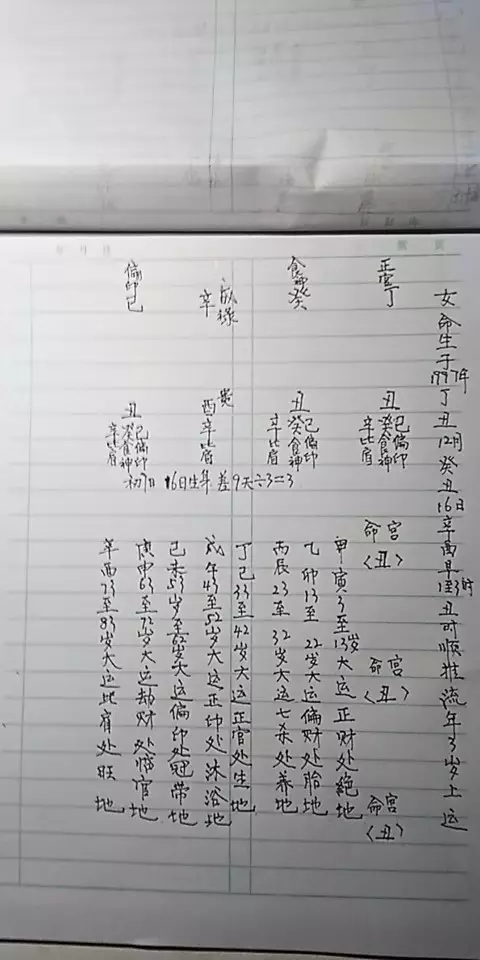 女命生于1997年丁丑12月癸丑16日辛酉早1至3时丑时顺推流年3岁上运
正官丁
丑
己偏印
癸食神
辛比肩
食神癸
丑
己偏印
癸食神
辛比肩
辛
酉
辛比肩
偏印己
丑
己偏印
癸食神
辛比肩
初7日 16日生年差9天÷3=3
命宫
〈丑〉
命宫
〈丑〉
命宫
〈丑〉
甲寅3至13岁大运正财处绝地
乙卯13至22岁大运偏财处胎地
丙辰23至32岁大运七杀处养地
丁巳33至42岁大运正官处生地
戊午43至52岁大运正印处沐浴地
己未53岁至62岁大运偏印处冠带地
庚申63至72岁大运劫财处临官地
辛酉73至83岁大运比肩处旺地